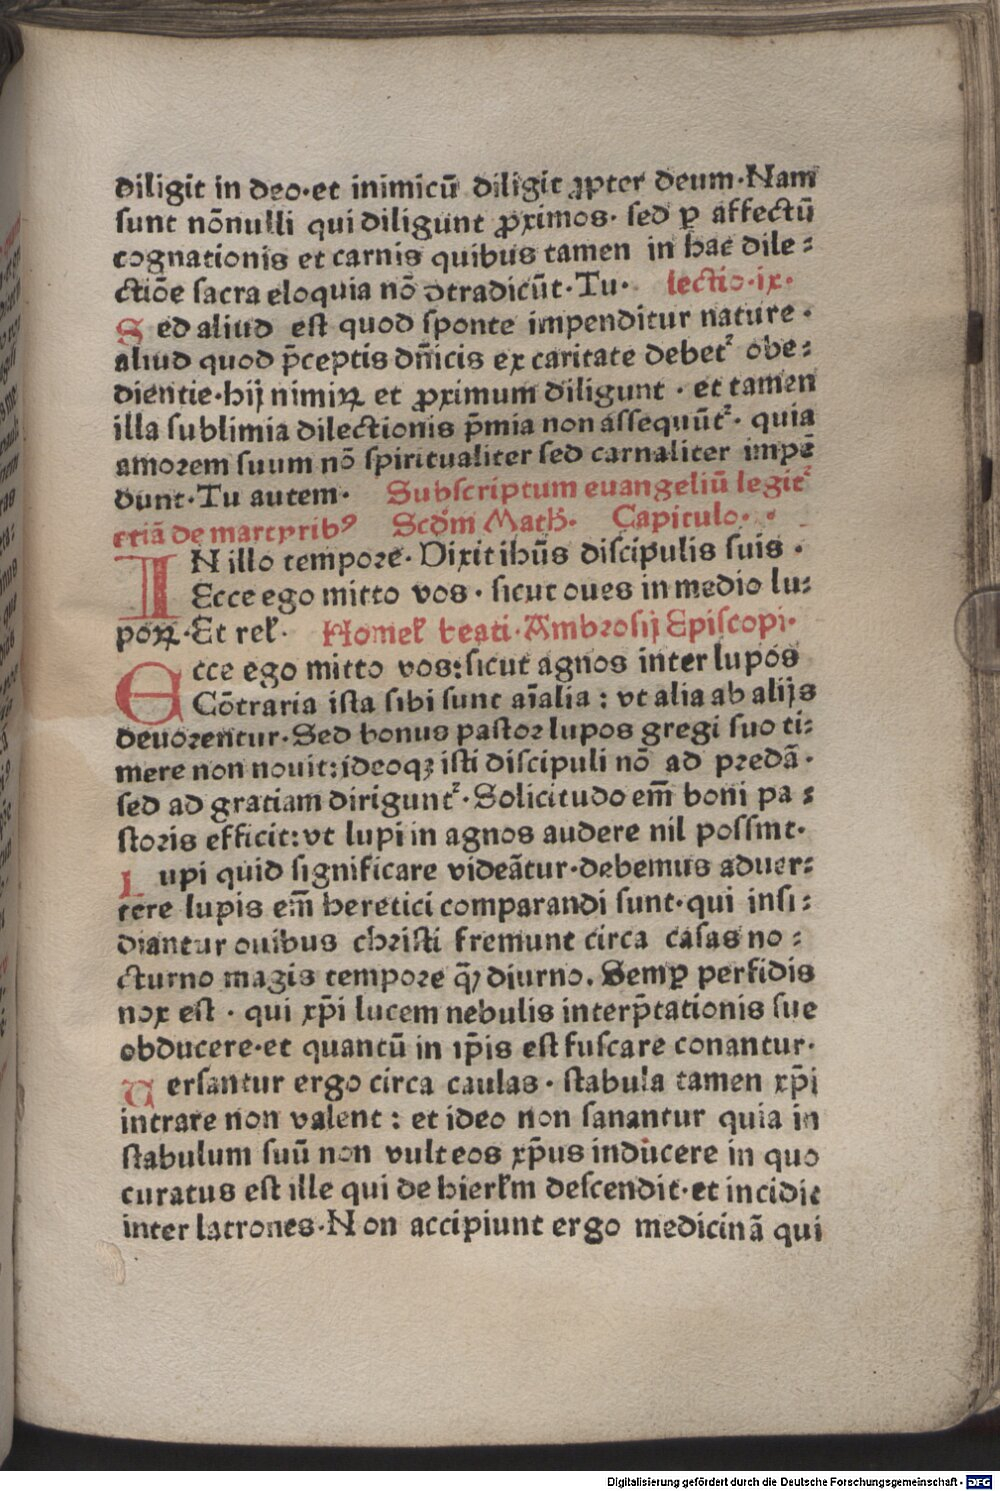 diligit in deo·et inimicū diligit ꝓpter deum·Nam
sunt nōnulli qui diligunt ꝓximos· sed ꝑ affectū
cognationis et carnis quibus tamen in hac dile⸗
ctiōe sacra eloquia nō ꝯtradicūt·Tu· lectio·ix·
Sed aliud est quod sponte impenditur nature ·
aliud quod p̄ceptis dn̄icis ex caritate debetᷣ obe⸗
dientie·hij nimiꝝ et ꝓximum diligunt · et tamen
illa sublimia dilectionis p̄mia non assequūtᷣ· quia
amorem suum nō spiritualiter sed carnaliter impē
dunt·Tu autem· Subscriptum euangeliū legitᷣ
etiā de martyribꝰ Scd̄m Math̄· Capitulo· ·
IN illo tempore· Dixit ihūs discipulis suis ·
Ecce ego mitto vos · sicut oues in medio lu⸗
poꝝ·Et rel̄· Homel̄ beati·Ambrosij Episcopi·
Ecce ego mitto vos:sicut agnos inter lupos
Cōtraria ista sibi sunt aīalia : vt alia ab alijs
deuorentur·Sed bonus pastor lupos gregi suo ti⸗
mere non nouit:ideoqꝫ isti discipuli nō ad predā·
sed ad gratiam diriguntᷣ·Solicitudo em̄ boni pa⸗
storis efficit:vt lupi in agnos audere nil possint·
Lupi quid significare videātur·debemus aduer⸗
tere lupis em̄ heretici comparandi sunt·qui insi⸗
diantur ouibus christi fremunt circa casas no⸗
cturno magis tempore q̄ꝫ diurno. Semꝑ perfidis
nox est · qui xp̄i lucem nebulis interp̄tationis sue
obducere·et quantū in ip̄is est fuscare conantur·
Uersantur ergo circa caulas · stabula tamen xp̄i
intrare non valent : et ideo non sanantur quia in
stabulum suū non vult eos xp̄us inducere in quo
curatus est ille qui de hierl̄m descendit·et incidit
inter latrones·Non accipiunt ergo medicinā qui
Digitalisierung gefördert durch die Deutsche Forschungsgemeinschaft · DFG